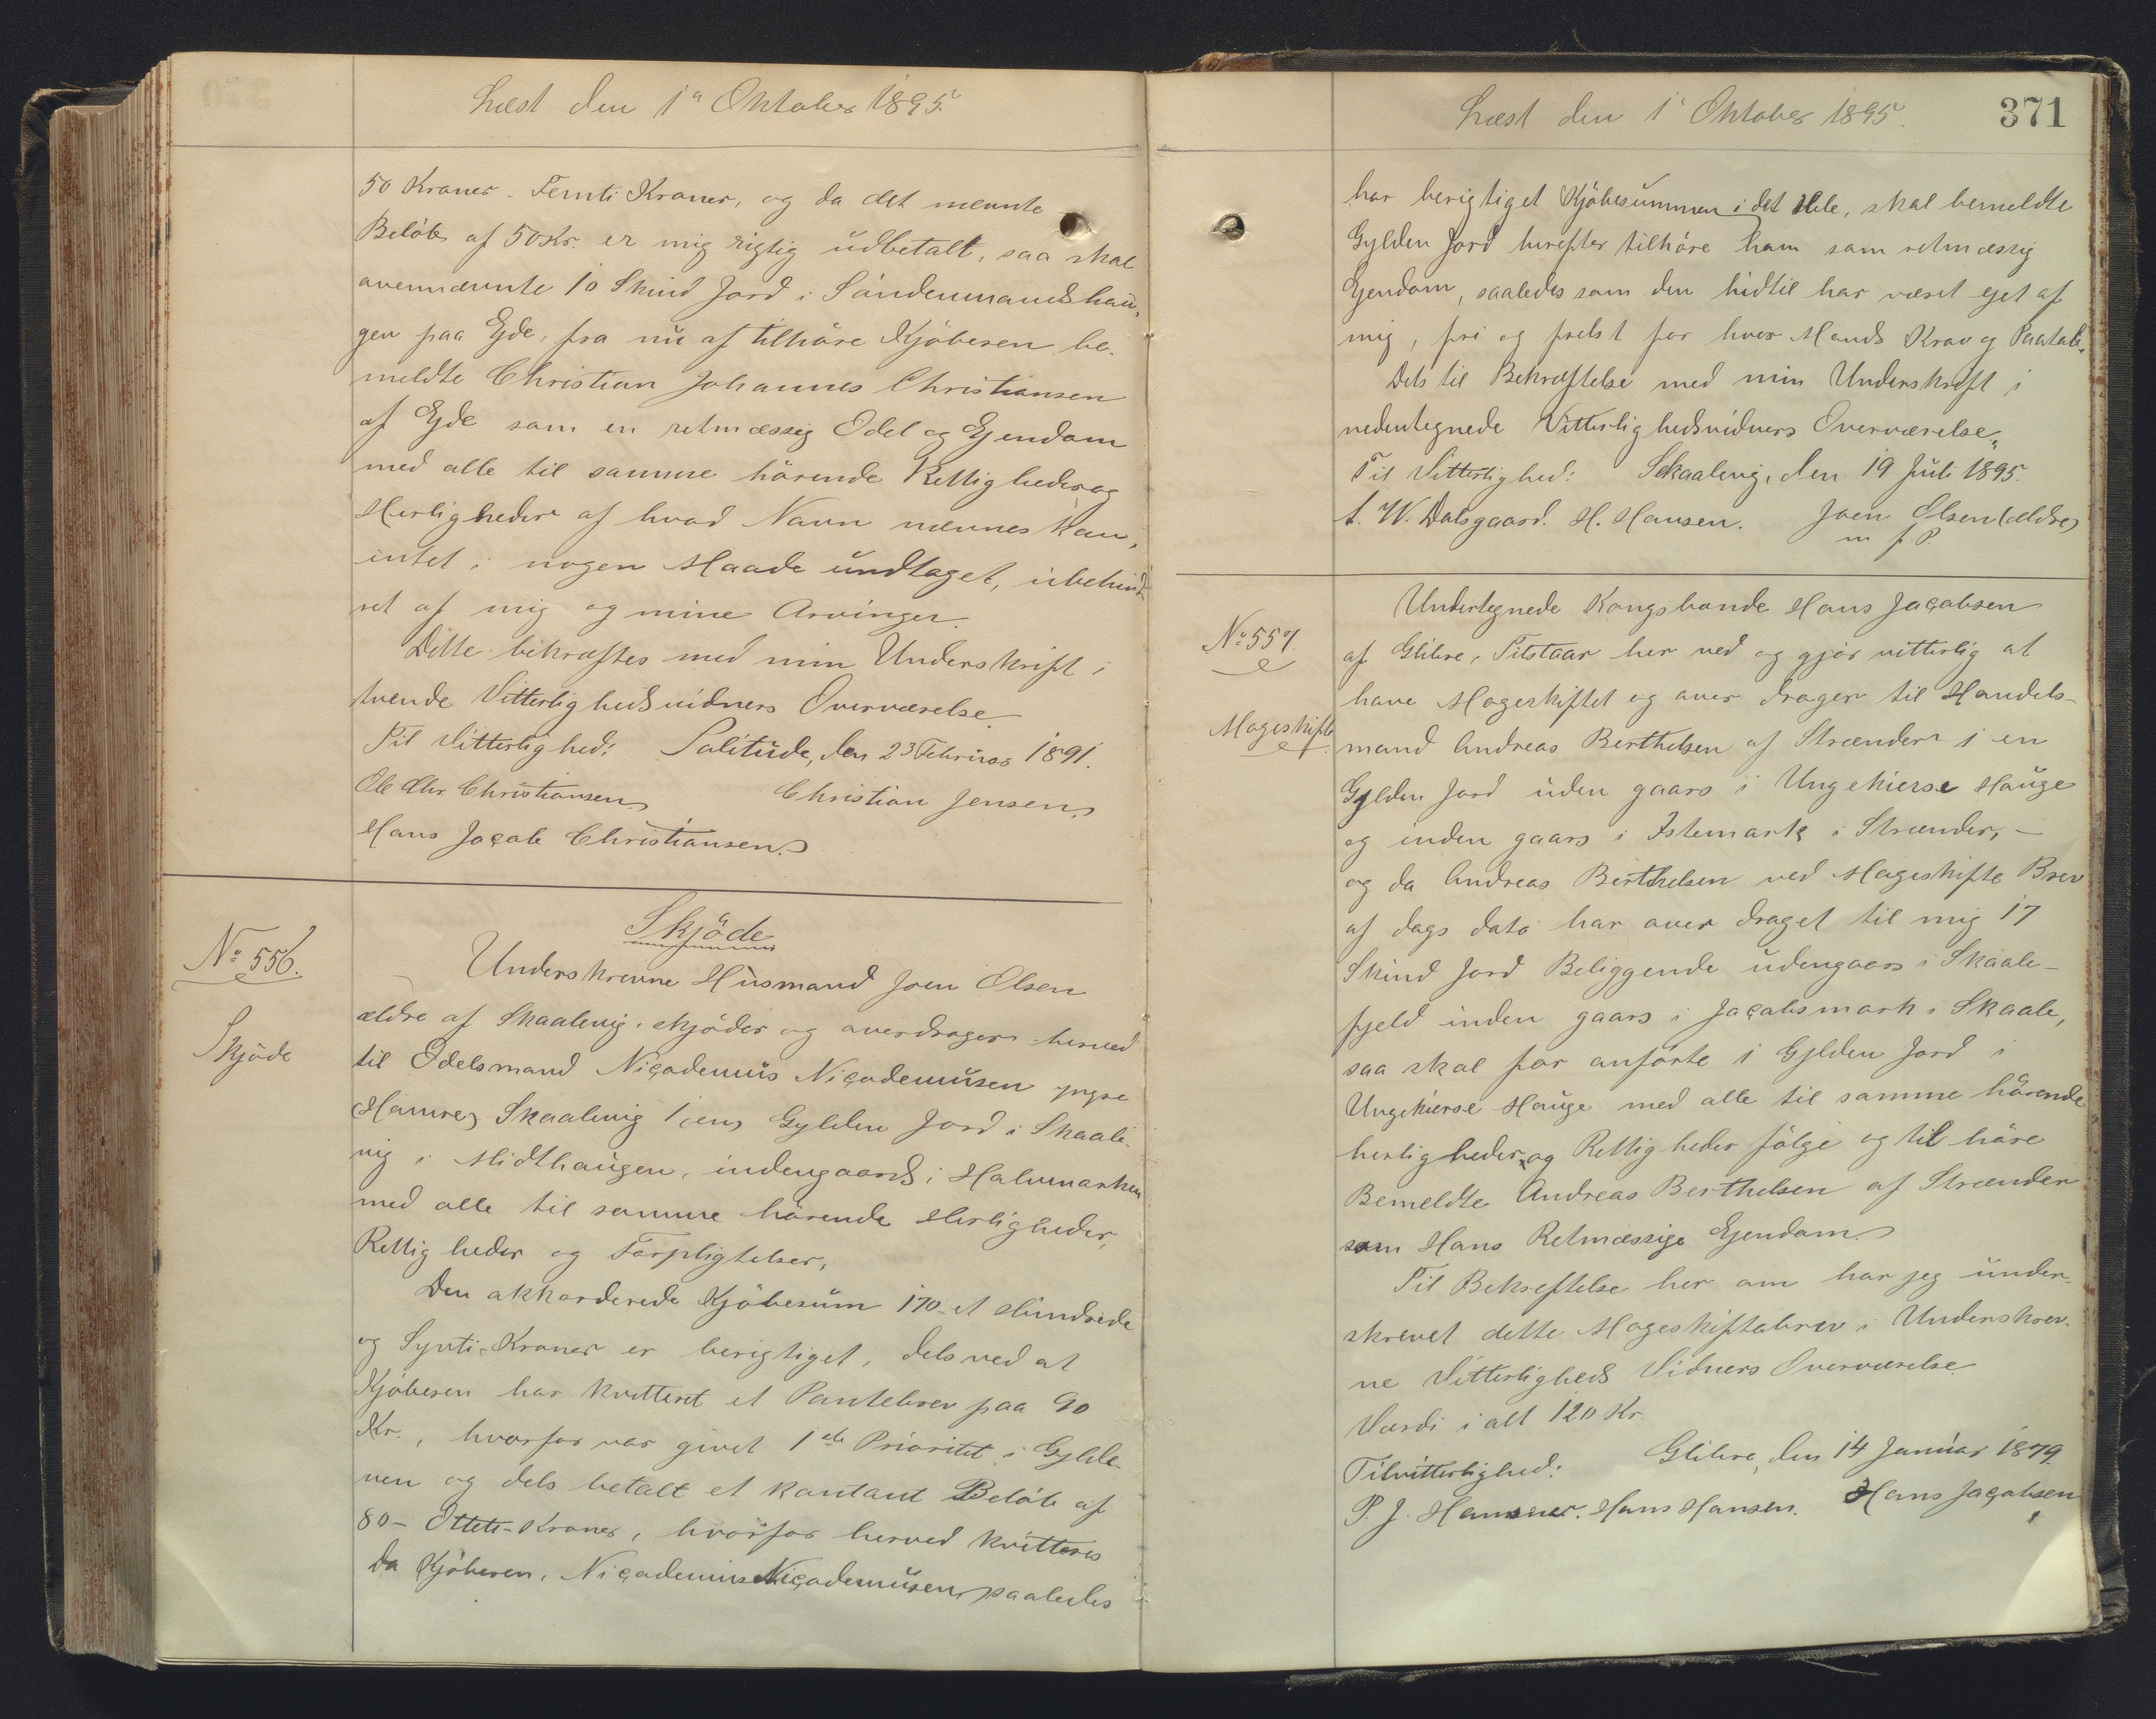 Læst den 1ᵃ Oktober 1895.
50 Kroner - Femti Kroner, og da det nævnte
Beløb af 50 Kr. er mig rigtig udbetalt, saa skal
ovennævnte 10 Skind Jord i Sóndenmandshau-
gen paa Ejde, fra nu af tilhøre Kjøberen be-
meldte Christian Johannes Christiansen
af Ejde som en retmæssig Odel og Ejendom
med alle til samme hørende Rettigheder og
Herligheder af hvad Navn nævnes kan,
intet i nogen Maade undtaget, ubehind-
ret af mig og mine Arvinger.
Dette bekræftes med min Underskrift i
tvende Vitterlighedsvidners Overværelse.
Til Vitterlighed: Solitude, den 23 Februar 1891.
Ole Chr. Christiansen Christian Jensen
Hans Jacob Christiansen.
No 556.
Skjøde
Skjøde
Underskrevne Húsmand Joen Olsen
ældre af Skaalevig, skjøder og overdrager herved
til Odelsmand Nicodemus Nicodemusen yngre
(Hamre) Skaalevig 1 (en) Gylden Jord i Skaale-
vig i Midthaugen, indengaards i Halvmarken
med alle til samme hørende Herligheder,
Rettigheder og Forpligtelser,
Den akkorderede Kjøbesum 170 - et Hundrede
og Synti - Kroner er berigtiget, dels ved at
Kjøberen har kvitteret et Pantebrev paa 90
Kr., hvorfor var givet 1ste Prioritet i Gylde-
nen og dels betalt et kontant Beløb af
80 - Otteti - Kroner, hvorfor herved kvitteres
Da Kjøberen, Nicodemus Nicodemusen, saaledes
Læst den 1ᵃ Oktober 1895.
371
har berigtiget Kjøbesummen i det Hele, skal bemeldte
Gylden Jord herefter tilhøre ham som retmæssig
Ejendom, saaledes som den hidtil har været ejet af
mig, fri og frelst for hver Mands Krav og Paatale.
Dets til Bekræftelse med min Underskrift i
nedentegnede Vitterlighedsvidners Overværelse.
Til Vitterlighed: Skaalevig, den 19 Juli 1895.
A. W. Dalsgaard. H. Hansen. Joen Olsen (ældre)
m. f. P.
No 557.
Mageskifte
Undertegnede Kongsbonde Hans Jacobsen
af Glibre, Tilstaar her ved og gjør vitterlig at
have Mageskiftet og over drager til Handels-
mand Andreas Berthelsen af Strænder 1 en
Gylden Jord uden gaars i Ungekierse Hauge
og inden gaars i Istemark i Strænder, -
og da Andreas Berthelsen ved Mageskifte Brev
af dags dato har over draget til mig 17
Skind Jord Beliggende udengaars i Skaale-
fjeld inden gaars i Jacobsmark i Skaale,
saa skal for anførte 1 Gylden Jord i
Ungekierse Hauge med alle til samme hørende
herligheder og Rettigheder følge og til høre
Bemeldte Andreas Berthelsen af Strænder
som Hans Retmæssige Ejendom.
Til Bekreftelse her om har jeg under-
skrevet dette Mageskiftebrev i Underskrev-
ne Vitterligheds Vidners Overværelse.
Værdi i alt 120 Kr.
Glibre, den 14 Januar 1879.
Tilvitterlighed:
P. J. Hammer. Hans Hansen. Hans Jacobsen